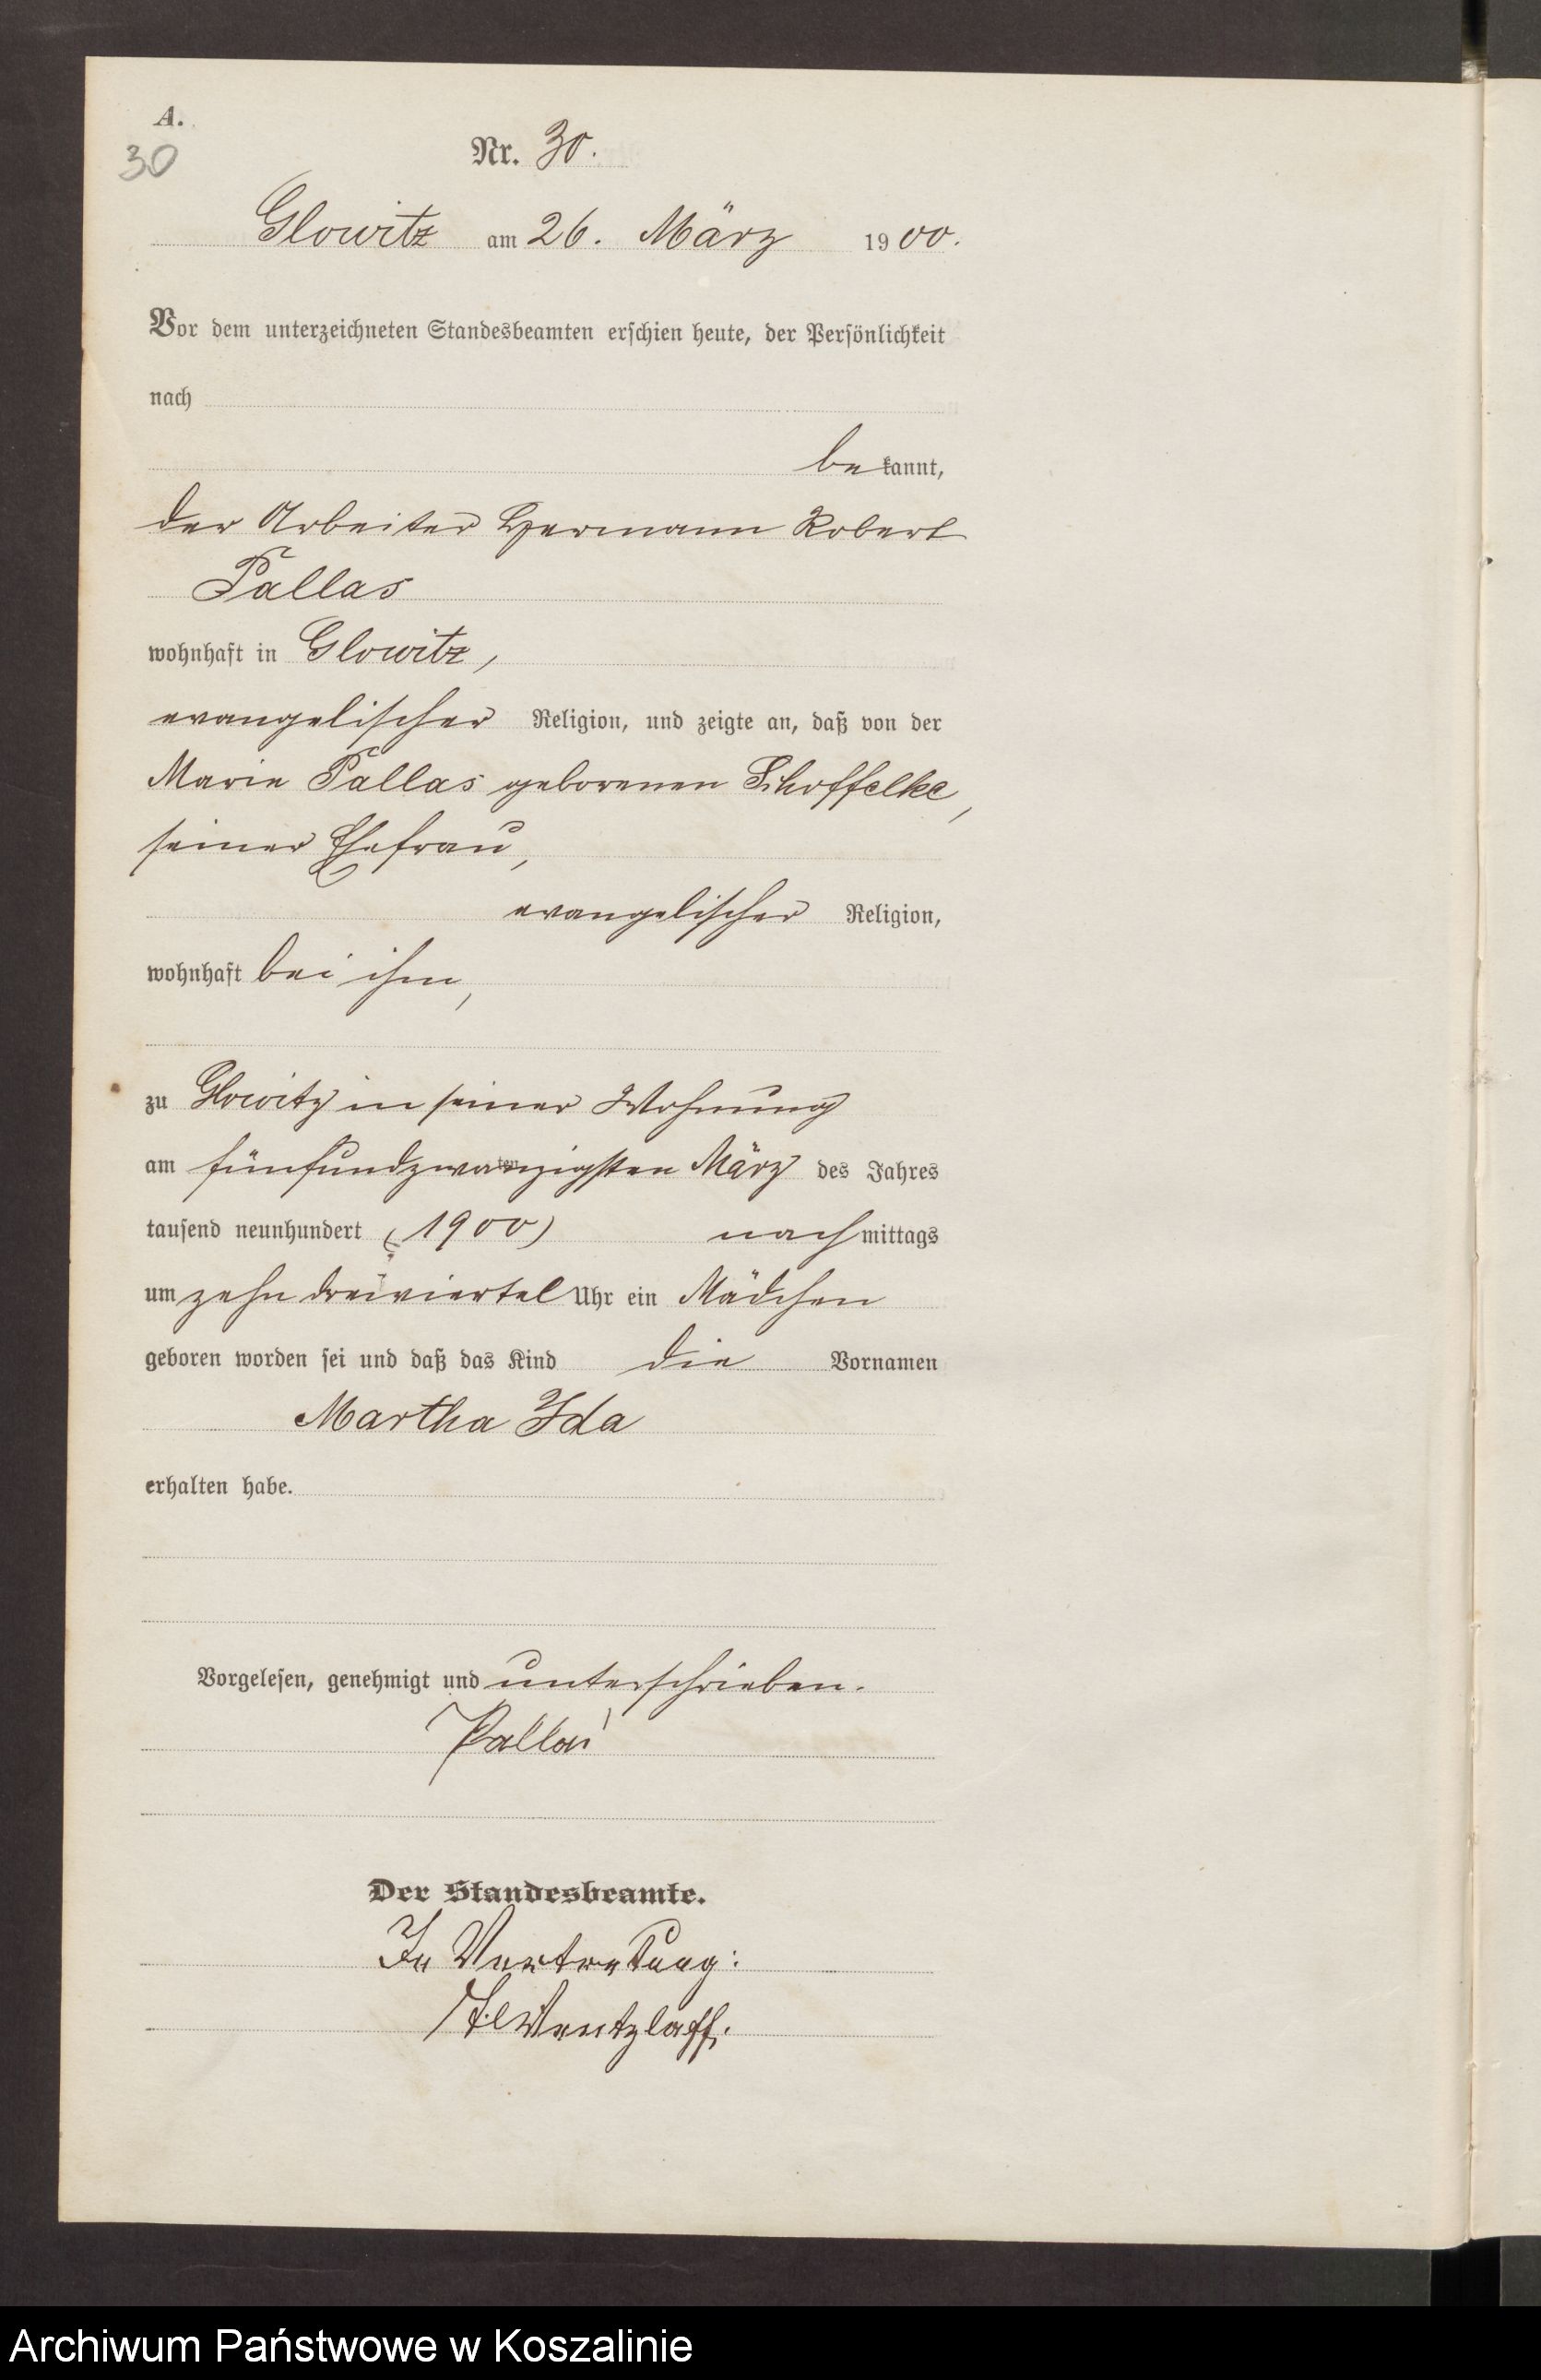 A.
30
Nr. 30.
Glowitz am 26. März 1900.
Vor dem unterzeichneten Standesbeamten erschien heute, der Persönlichkeit
nach
bekannt,
der Arbeiter Hermann Robert
Pallas
wohnhaft in Glowitz,
evangelischer Religion, und zeigte an, daß von der
Marie Pallas geborenen Schoffelke,
seiner Ehefrau,
evangelischer Religion,
wohnhaft bei ihm,
zu Glowitz in seiner Wohnung
am fünfundzwanzigsten März des Jahres
tausend neunhundert (1900) nachmittags
um zehn dreiviertel Uhr ein Mädchen
geboren worden sei und daß das Kind die Vornamen
Martha Ida
erhalten habe.
Vorgelesen, genehmigt und unterschrieben.
Pallas
Der Standesbeamte.
In Vertretung:
Wentzlaff.
Archiwum Państwowe w Koszalinie